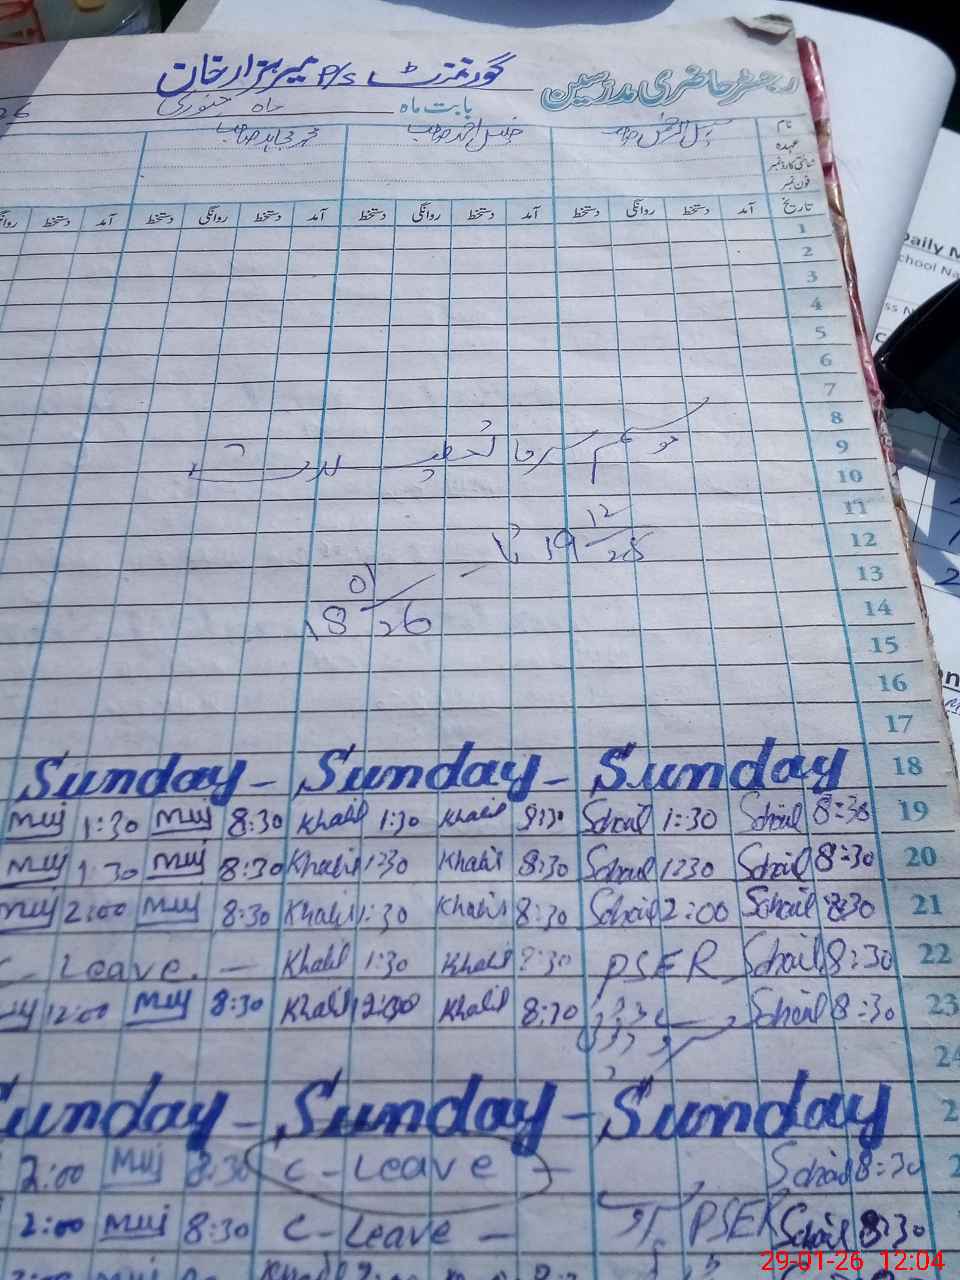 رجسٹر حاضری مدرسین گورنمنٹ P/S میر ہزار خان
بابت ماہ ماہ جنوری 26
نام خلیل احمد صاحب محمد مجاہد صاحب
عہدہ
شناختی کارڈ نمبر
فون نمبر
تاریخ آمد دستخط روانگی دستخط آمد دستخط روانگی دستخط آمد دستخط روانگی دستخط آمد دستخط
1
2
3
4
5
6
7
8
9
موسم سرما
10
11
12
19 12/25
13
14
18 01/26
15
16
17
Sunday - Sunday - Sunday 18
Muj 1:30 Muj 8:30 Khalil 1:30 Khalil 8:30 Sohail 1:30 Sohail 8:30 19
Muj 1:30 Muj 8:30 Khalil 1:30 Khalil 8:30 Sohail 1:30 Sohail 8:30 20
Muj 2:00 Muj 8:30 Khalil 1:30 Khalil 8:30 Sohail 2:00 Sohail 8:30 21
C- Leave. — Khalil 1:30 Khalil 8:30 PSER Sohail 8:30 22
Muj 12:00 Muj 8:30 Khalil 12:00 Khalil 8:30 Sohail 8:30 23
24
Sunday - Sunday - Sunday 2
2:00 Muj 8:30 C- Leave — Sohail 8:30 2
2:00 Muj 8:30 C- Leave — PSER Sohail 8:30
Daily M
School Na
29-01-26 12:04